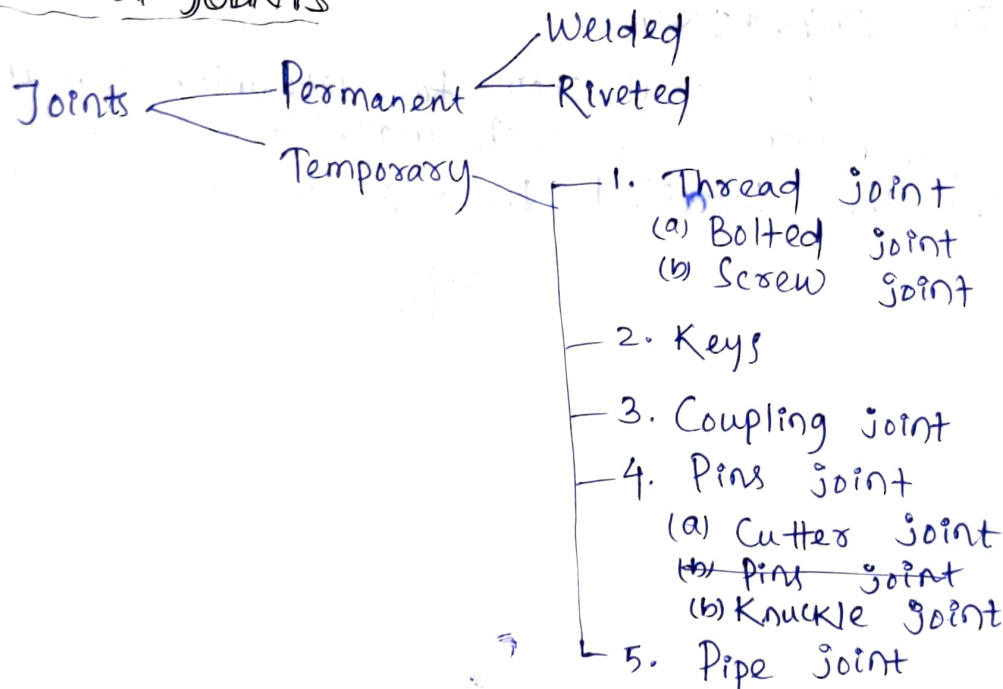 JOINTS
Welded
Joints Permanent Riveted
Temporary
1. Thread joint
(a) Bolted joint
(b) Screw joint
2. Keys
3. Coupling joint
4. Pins joint
(a) Cutter joint
(b) Pins joint
(b) Knuckle joint
5. Pipe joint